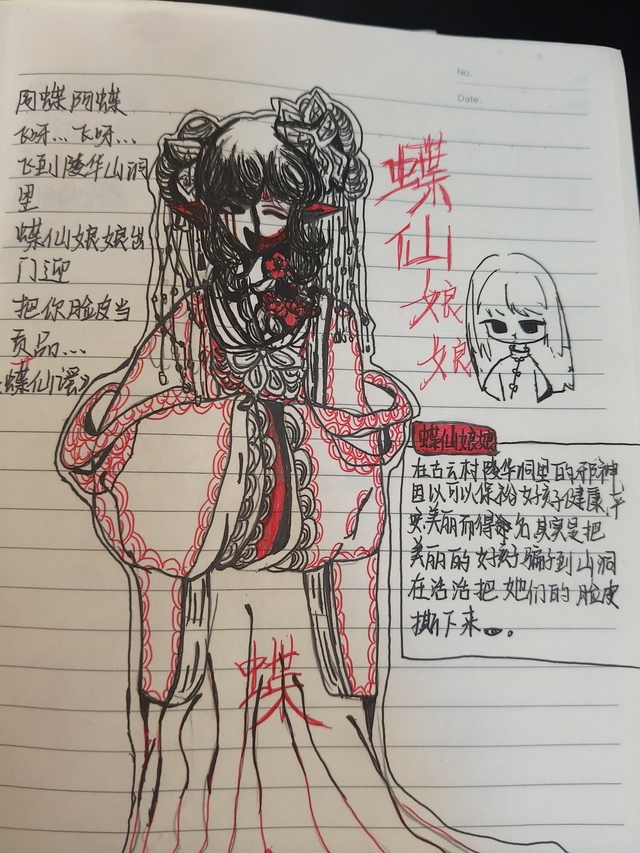 No.
Date.
阿蝶阿蝶
飞呀...飞呀...
飞到陵华山洞
里
蝶仙娘娘出
门迎
把你脸皮当
贡品...
《蝶仙谣》
蝶
仙
娘
娘
蝶仙娘娘
在古云村陵华洞里的邪神
因以可以保祢女孩子健康,平
安美丽而得命名其实是把
美丽的女孩子骗子到山洞
在活活把她们的脸皮
撕下来
蝶